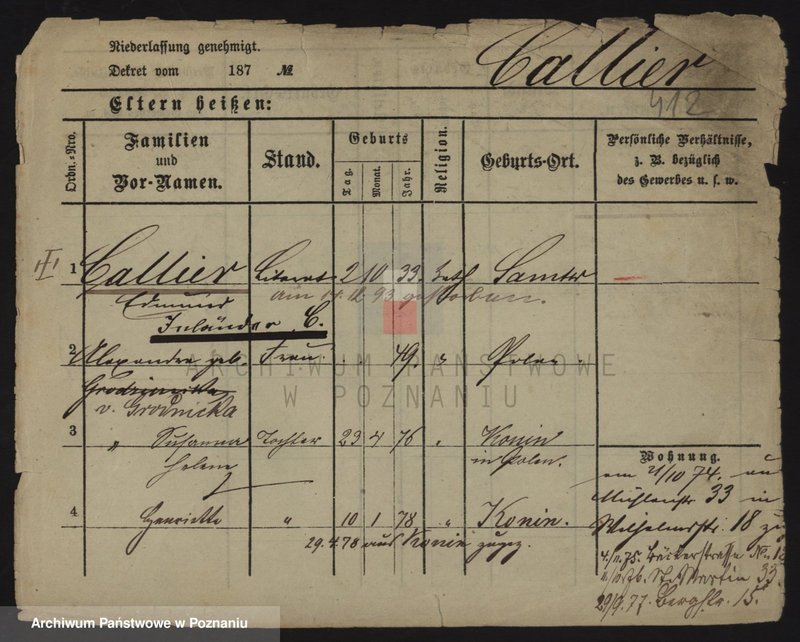 Niederlassung genehmigt.
Dekret vom 187 №
Callier
412
Eltern heißen:
Ordn.-Nro.
Familien
und
Vor-Namen.
Stand.
Geburts
Tag.
Monat.
Jahr.
Religion.
Geburts-Ort.
Persönliche Verhältnisse,
z. B. bezüglich
des Gewerbes u. s. w.
1 Callier Literat 2 10 33. kath Samter
Edmund am 14.12.93 gestorben.
Inländer C.
2 Alexandra geb. Frau 49. " Polen.
v. Grodnicka
3 " Susanna Tochter 23 4 76 " Konin
Helene in Polen.
4 Henriette " 10 1 78 " Konin.
29.4.78 aus Konin zugez.
Wohnung.
am 21/10 74. au
Mühlenstr 33 in
Wilhelmstr. 18 zu
4./11.75. Bäckerstrasse No. 13
St. Martin 33.
29/9.77. Bergstr. 15.
ARCHIWUM PAŃSTWOWE
W POZNANIU
Archiwum Państwowe w Poznaniu